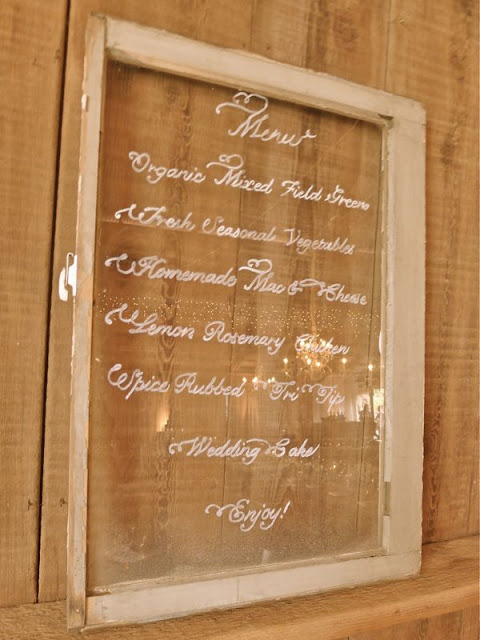 Menu
Organic Mixed Field Greens
Fresh Seasonal Vegetables
Homemade Mac & Cheese
Lemon Rosemary Chicken
Spice Rubbed Tri Tip
Wedding Cake
Enjoy!